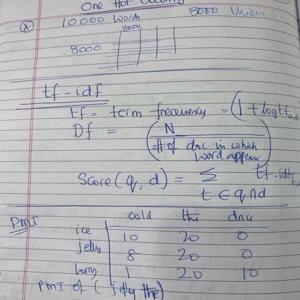 One Hot
10000 Words 8000 Unique
8000
8000
tf-idf
tf = term frequency = (1 + log tf
Df = (N
# of doc in which
word appear)
Score(q, d) = Σ tf.idf
t ∈ q∩d
PMI cold the doc
ice 10 20 0
jelly 8 20 0
1 20 10
PMI of (